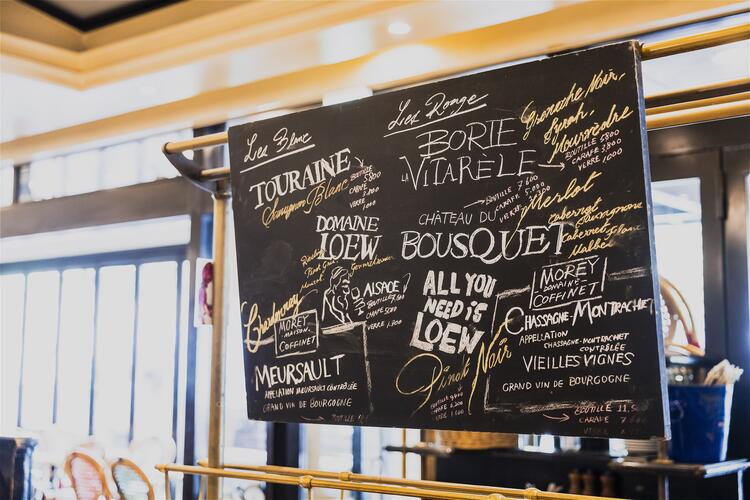 Les Blanc
TOURAINE
Sauvignon Blanc
BOUTILLE 5.800
CARAFE 3.800
VERRE 1.000
DOMAINE
LOEW
Gewurztraminer
ALSACE
BOUTILLE
CARAFE 5000
VERRE 1.300
Chardonnay
MOREY
MAISON
COFFINET
MEURSAULT
APPELLATION MEURSAULT CONTRÔLÉE
GRAND VIN DE BOURGOGNE
BOUTILLE
CARAFE
Les Rouge
BORIE
VITARÈLE
Grenache Noir,
Syrah
Mourvèdre
BOUTILLE 5.800
CARAFE 3.800
VERRE 1.000
CHÂTEAU DU
BOUSQUET
BOUTILLE 7.600
CARAFE 5.000
VERRE
Merlot
Cabernet Sauvignon
Cabernet Franc
Malbec
ALL YOU
NEED IS
LOEW
Pinot Noir
BOUTILLE
CARAFE
VERRE
MOREY
DOMAINE
COFFINET
CHASSAGNE-MONTRACHET
APPELATION
CHASSAGNE-MONTRACHET
CONTRÔLÉE
VIEILLES VIGNES
GRAND VIN DE BOURGOGNE
BOUTILLE
CARAFE
VERRE